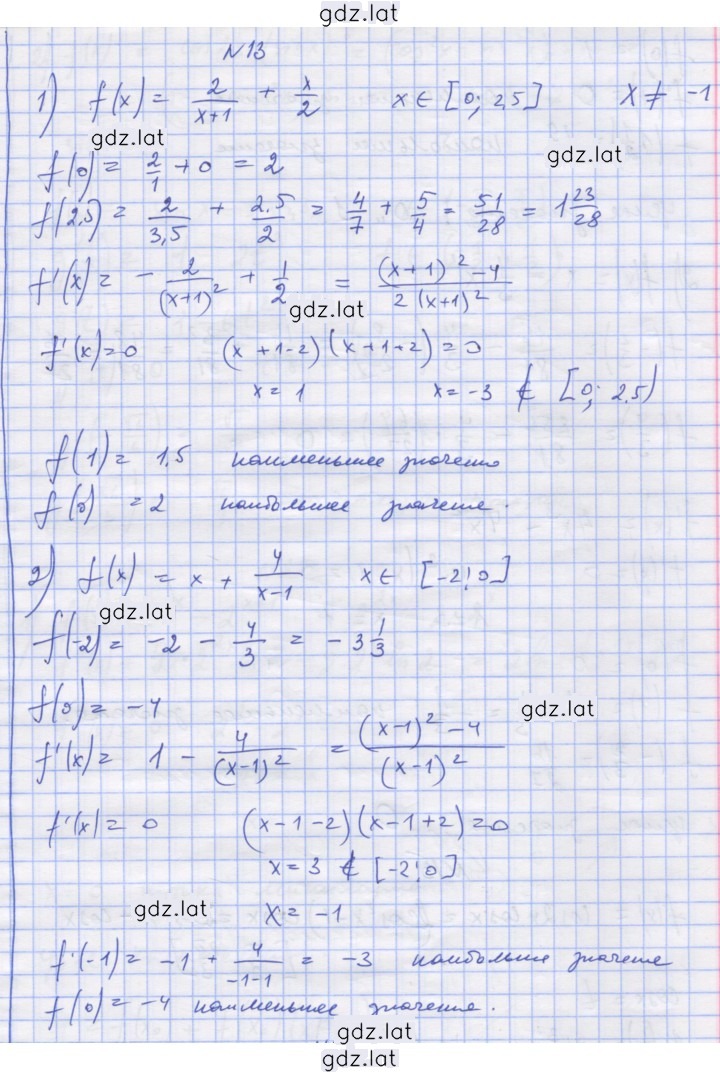 gdz.lat
N13
1) f(x) = 2/(x+1) + x/2   x ∈ [0; 2,5]   x ≠ -1
gdz.lat
gdz.lat
f(0) = 2/1 + 0 = 2
f(2,5) = 2/3,5 + 2,5/2 = 4/7 + 5/4 = 51/28 = 1 23/28
f'(x) = - 2/(x+1)² + 1/2 = ((x+1)² - 4)/(2(x+1)²)
gdz.lat
f'(x) = 0   (x+1-2)(x+1+2) = 0
x = 1   x = -3 ∉ [0; 2,5)
f(1) = 1,5 наименьшее значение
f(0) = 2 наибольшее значение.
2) f(x) = x + 4/(x-1)   x ∈ [-2; 0]
gdz.lat
f(-2) = -2 - 4/3 = -3 1/3
f(0) = -4
gdz.lat
f'(x) = 1 - 4/(x-1)² = ((x-1)² - 4)/(x-1)²
f'(x) = 0   (x-1-2)(x-1+2) = 0
x = 3 ∉ [-2; 0]
gdz.lat
x = -1
f'(-1) = -1 + 4/(-1-1) = -3 наибольше значение
f(0) = -4 наименьшее значение.
gdz.lat
gdz.lat